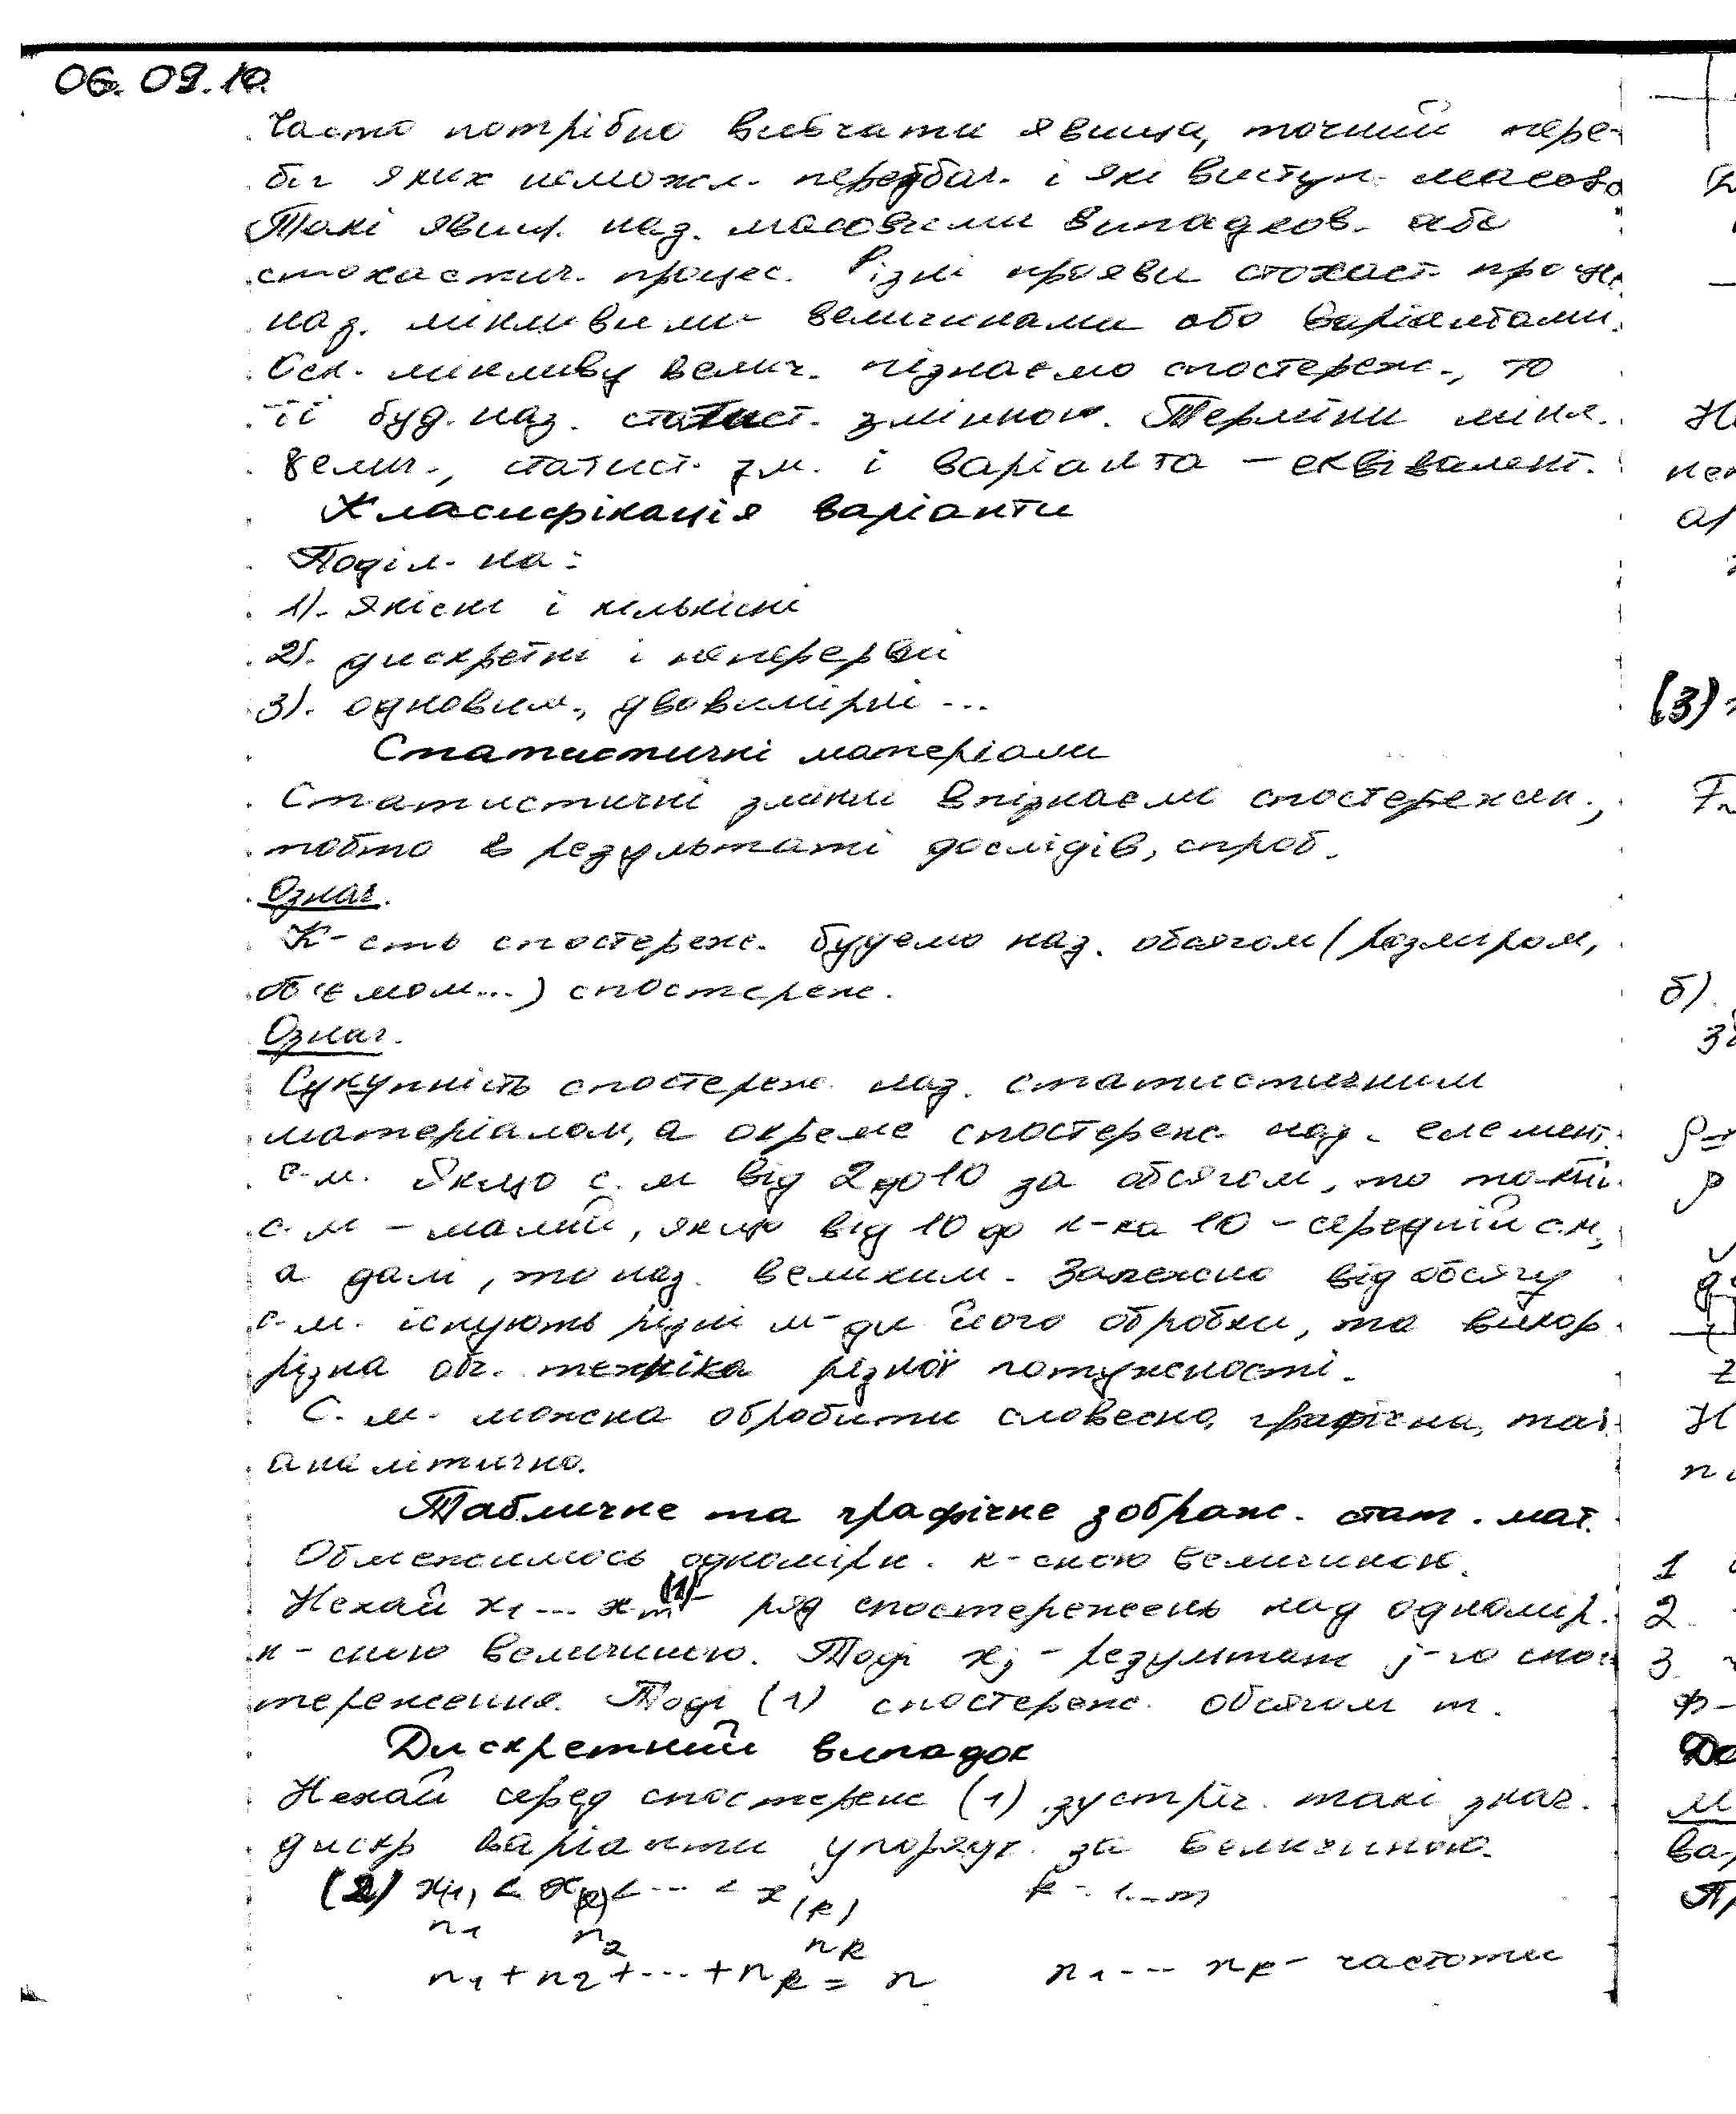 06.09.10.
Часто потрібно вивчати явища, точний пере-
біг яких неможл. передбач. і які виступ. масово
Такі явищ. наз. масовими випадков. або
стохастич. процес. Різні прояви стохаст. проц.
наз. мінливими величинами або варіантами.
Оск. мінливу велич. пізнаємо спостереж., то
її буд. наз. статист. змінною. Терміни мінл.
велич., статист. зм. і варіанта – еквівалент.
Класифікація варіанти
Поділ. на:
1). якісні і кількісні
2). дискретні і неперервні
3). одновим., двовимірні ...
Статистичні матеріали
Статистичні змінні впізнаєм спостережен.,
тобто в результаті дослідів, спроб.
Означ.
К-сть спостереж. будемо наз. обсягом (розміром,
об'ємом...) спостереж.
Означ.
Сукупність спостереж. наз. статистичним
матеріалом, а окреме спостереж. наз. елемент.
с.м. Якщо с.м від 2 до 10 за обсягом, то такий
с.м – малий, якщо від 10 до к-ка 10 – середній с.м,
а далі, то наз. великим. Залежно від обсягу
с.м. існують різні м-ди його обробки, та викор.
різна обч. техніка різної потужності.
С.м. можна обробити словесно, графічно, та
аналітично.
Табличне та графічне зображ. стат. мат.
Обмежимось одномірн. к-сною величиною.
Нехай x1 ... xm (1) – ряд спостережень над одномір.
к-сною величиною. Тоді xj – результат j-го спос
тереження. Тоді (1) спостереж. обсягом m.
Дискретний випадок
Нехай серед спостереж (1) зустріч. такі знач.
дискр варіанти упорядк. за величиною.
(2) x(1) < x(2) < ... < x(k) k = 1...m
n1 n2 nk
n1 + n2 + ... + nk = n n1 ... nk – частоти
(3)
б)
1
2
3